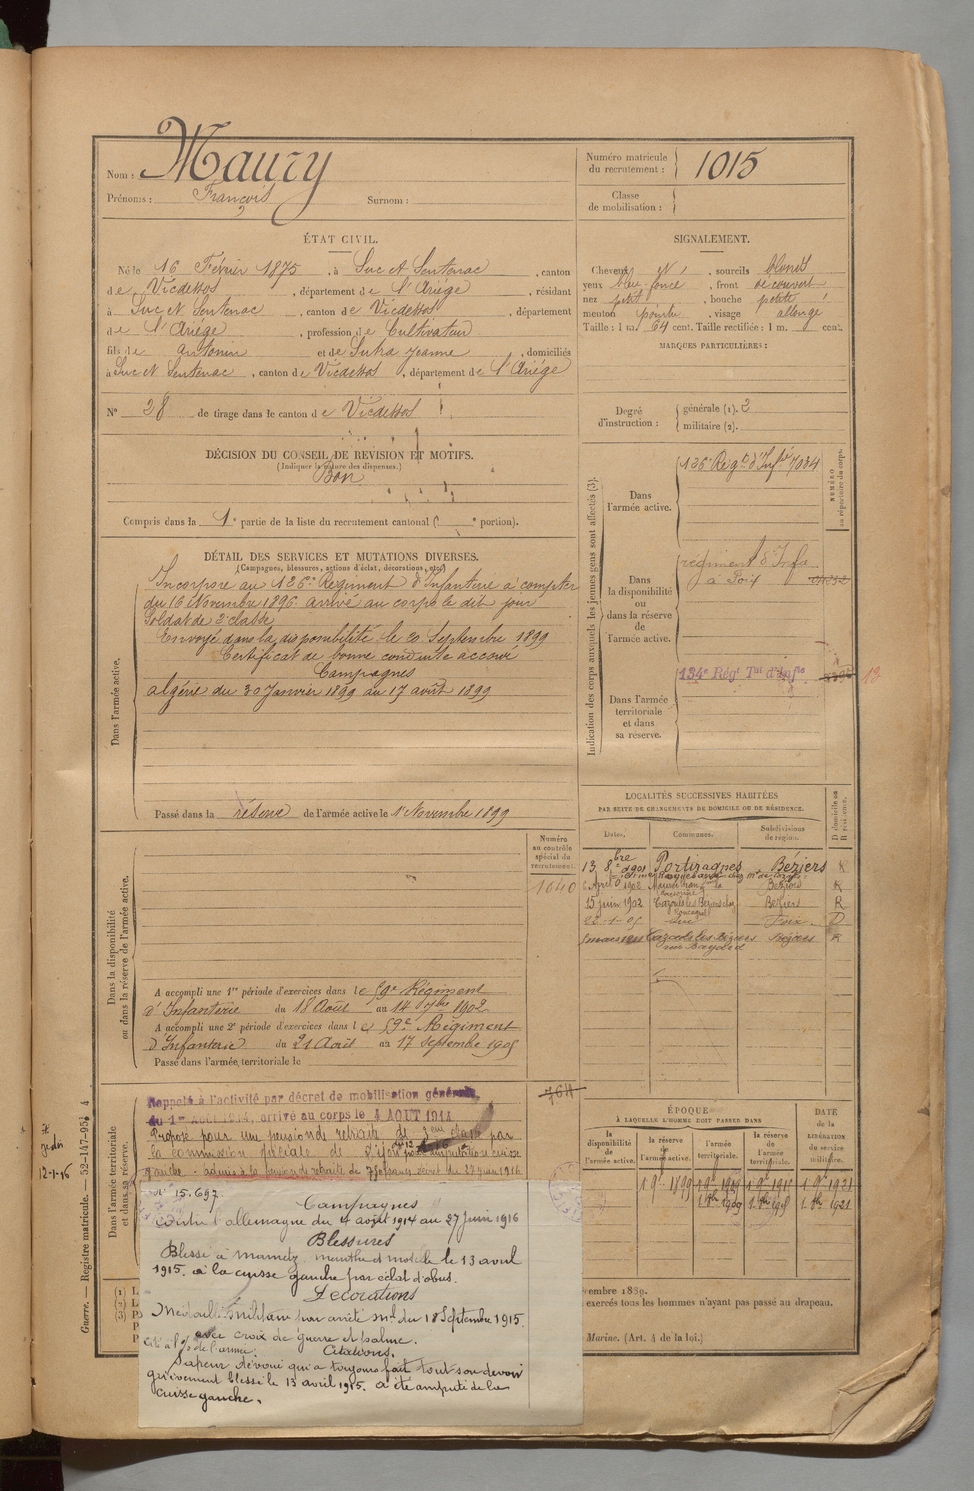 Nom : Maury
Prénoms : François Surnom :
Numéro matricule du recrutement : 1015
Classe de mobilisation :
ÉTAT CIVIL.
Né le 16 Février 1875, à Suc et Sentenac, canton
de Vicdessos, département de l'Ariège, résidant
à Suc et Sentenac, canton de Vicdessos, département
de l'Ariège, profession de Cultivateur
fils de Antonin et de Sutra Jeanne, domiciliés
à Suc et Sentenac, canton de Vicdessos, département de l'Ariège
N° 28 de tirage dans le canton de Vicdessos
SIGNALEMENT.
Cheveux, sourcils blonds
yeux bleu foncé, front découvert
nez petit, bouche petite
menton pointu, visage allongé
Taille : 1 m. 64 cent. Taille rectifiée : 1 m. cent.
MARQUES PARTICULIÈRES :
Degré d'instruction : générale (1). 2
militaire (2).
DÉCISION DU CONSEIL DE REVISION ET MOTIFS.
(Indiquer la nature des dispenses.)
Bon
Compris dans la 1e partie de la liste du recrutement cantonal ( e portion).
DÉTAIL DES SERVICES ET MUTATIONS DIVERSES.
(Campagnes, blessures, actions d'éclat, décorations, etc.)
Dans l'armée active.
Incorporé au 126e Régiment d'Infanterie à compter
du 16 Novembre 1896. arrivé au corps le dit jour
Soldat de 2e classe
Envoyé dans la disponibilité le 20 Septembre 1899
Certificat de bonne conduite accordé
Campagnes
Algérie du 30 Janvier 1899 au 17 août 1899
Passé dans la réserve de l'armée active le 1er Novembre 1899
Indication des corps auxquels les jeunes gens sont affectés (3).
NUMÉRO au répertoire du corps.
Dans l'armée active.
126e Régt d'Infie 7034
Dans la disponibilité ou dans la réserve de l'armée active.
régiment d'Infie
à Foix
Dans l'armée territoriale et dans sa réserve.
134e Régt Tal d'Infie 13
LOCALITÉS SUCCESSIVES HABITÉES
PAR SUITE DE CHANGEMENTS DE DOMICILE OU DE RÉSIDENCE.
Dates. Communes. Subdivisions de région. D domicile ou R résidence.
13 8bre 1901 Portiragnes Béziers R
6 Avril 1902 Béziers R
15 juin 1902 Cazouls les Béziers Béziers R
22-1-05 Suc Foix D
Cazouls les Béziers Béziers R
Dans la disponibilité ou dans la réserve de l'armée active.
Numéro au contrôle spécial du recrutement.
1040
A accompli une 1re période d'exercices dans le 59e Régiment
d'Infanterie du 18 Août au 14 7bre 1902
A accompli une 2e période d'exercices dans le 59e Régiment
d'Infanterie du 21 Août au 17 Septembre 1905
Passé dans l'armée territoriale le
Dans l'armée territoriale et dans sa réserve.
Rappelé à l'activité par décret de mobilisation générale
du 1er AOUT 1914, arrivé au corps le 4 AOUT 1914
Proposé pour une pension de retraite de 3eme classe par
la commission spéciale de Dijon pour amputation cuisse
gauche. - admis à la pension de retraite de 750 francs décret du 27 juin 1916
764
12-1-16
ÉPOQUE
À LAQUELLE L'HOMME DOIT PASSER DANS
la disponibilité de l'armée active. la réserve de l'armée active. l'armée territoriale. la réserve de l'armée territoriale. DATE DE LA LIBÉRATION DU SERVICE MILITAIRE.
1 9e 1899 1 9e 1909 1 9e 1915 1 9e 1921
1. 8bre 1909 1. 8bre 1915 1. 8bre 1921
N° 15.697
Campagnes
contre l'allemagne du 4 août 1914 au 27 juin 1916
Blessures
Blessé à Mametz, meurthe et moselle le 13 avril
1915. à la cuisse gauche par éclat d'obus.
Décorations
Médaille militaire par arrêté mel du 18 Septembre 1915.
avec croix de guerre et palme.
Cité à l'O/ de l'armée. Citations.
Sapeur dévoué qui a toujours fait tout son devoir
grièvement blessé le 13 avril 1915. a été amputé de la
cuisse gauche.
embre 1889.
exercés tous les hommes n'ayant pas passé au drapeau.
Marine. (Art. 4 de la loi.)
(1) L
(2) L
(3) P
Guerre. — Registre matricule. — 52-147-95. 4